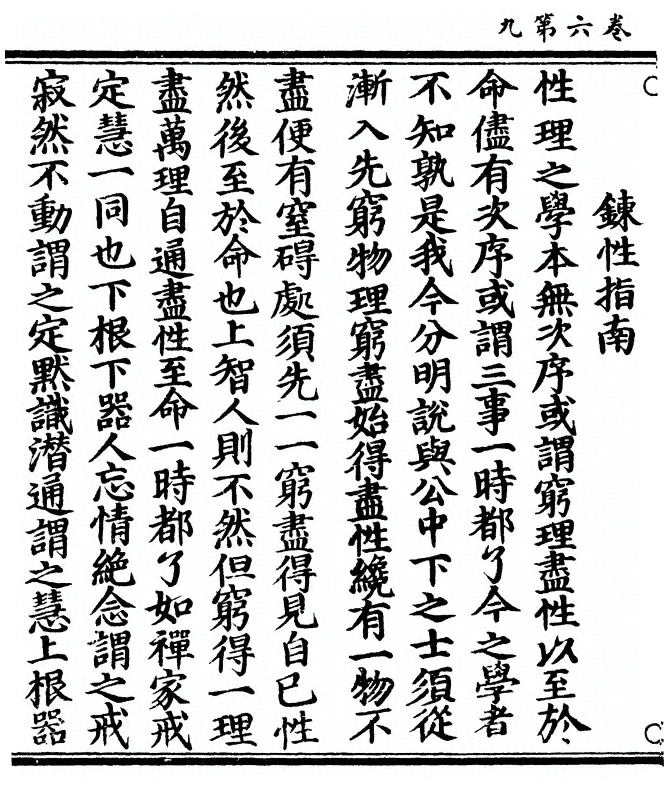 卷六第九
鍊性指南
性理之學本無次序或謂窮理盡性以至於
命儘有次序或謂三事一時都了今之學者
不知孰是我今分明說與公中下之士須從
漸入先窮物理窮盡始得盡性纔有一物不
盡便有窒碍處須先一一窮盡得見自己性
然後至於命也上智人則不然但窮得一理
盡萬理自通盡性至命一時都了如禪家戒
定慧一同也下根下器人忘情絕念謂之戒
寂然不動謂之定默識潛通謂之慧上根器